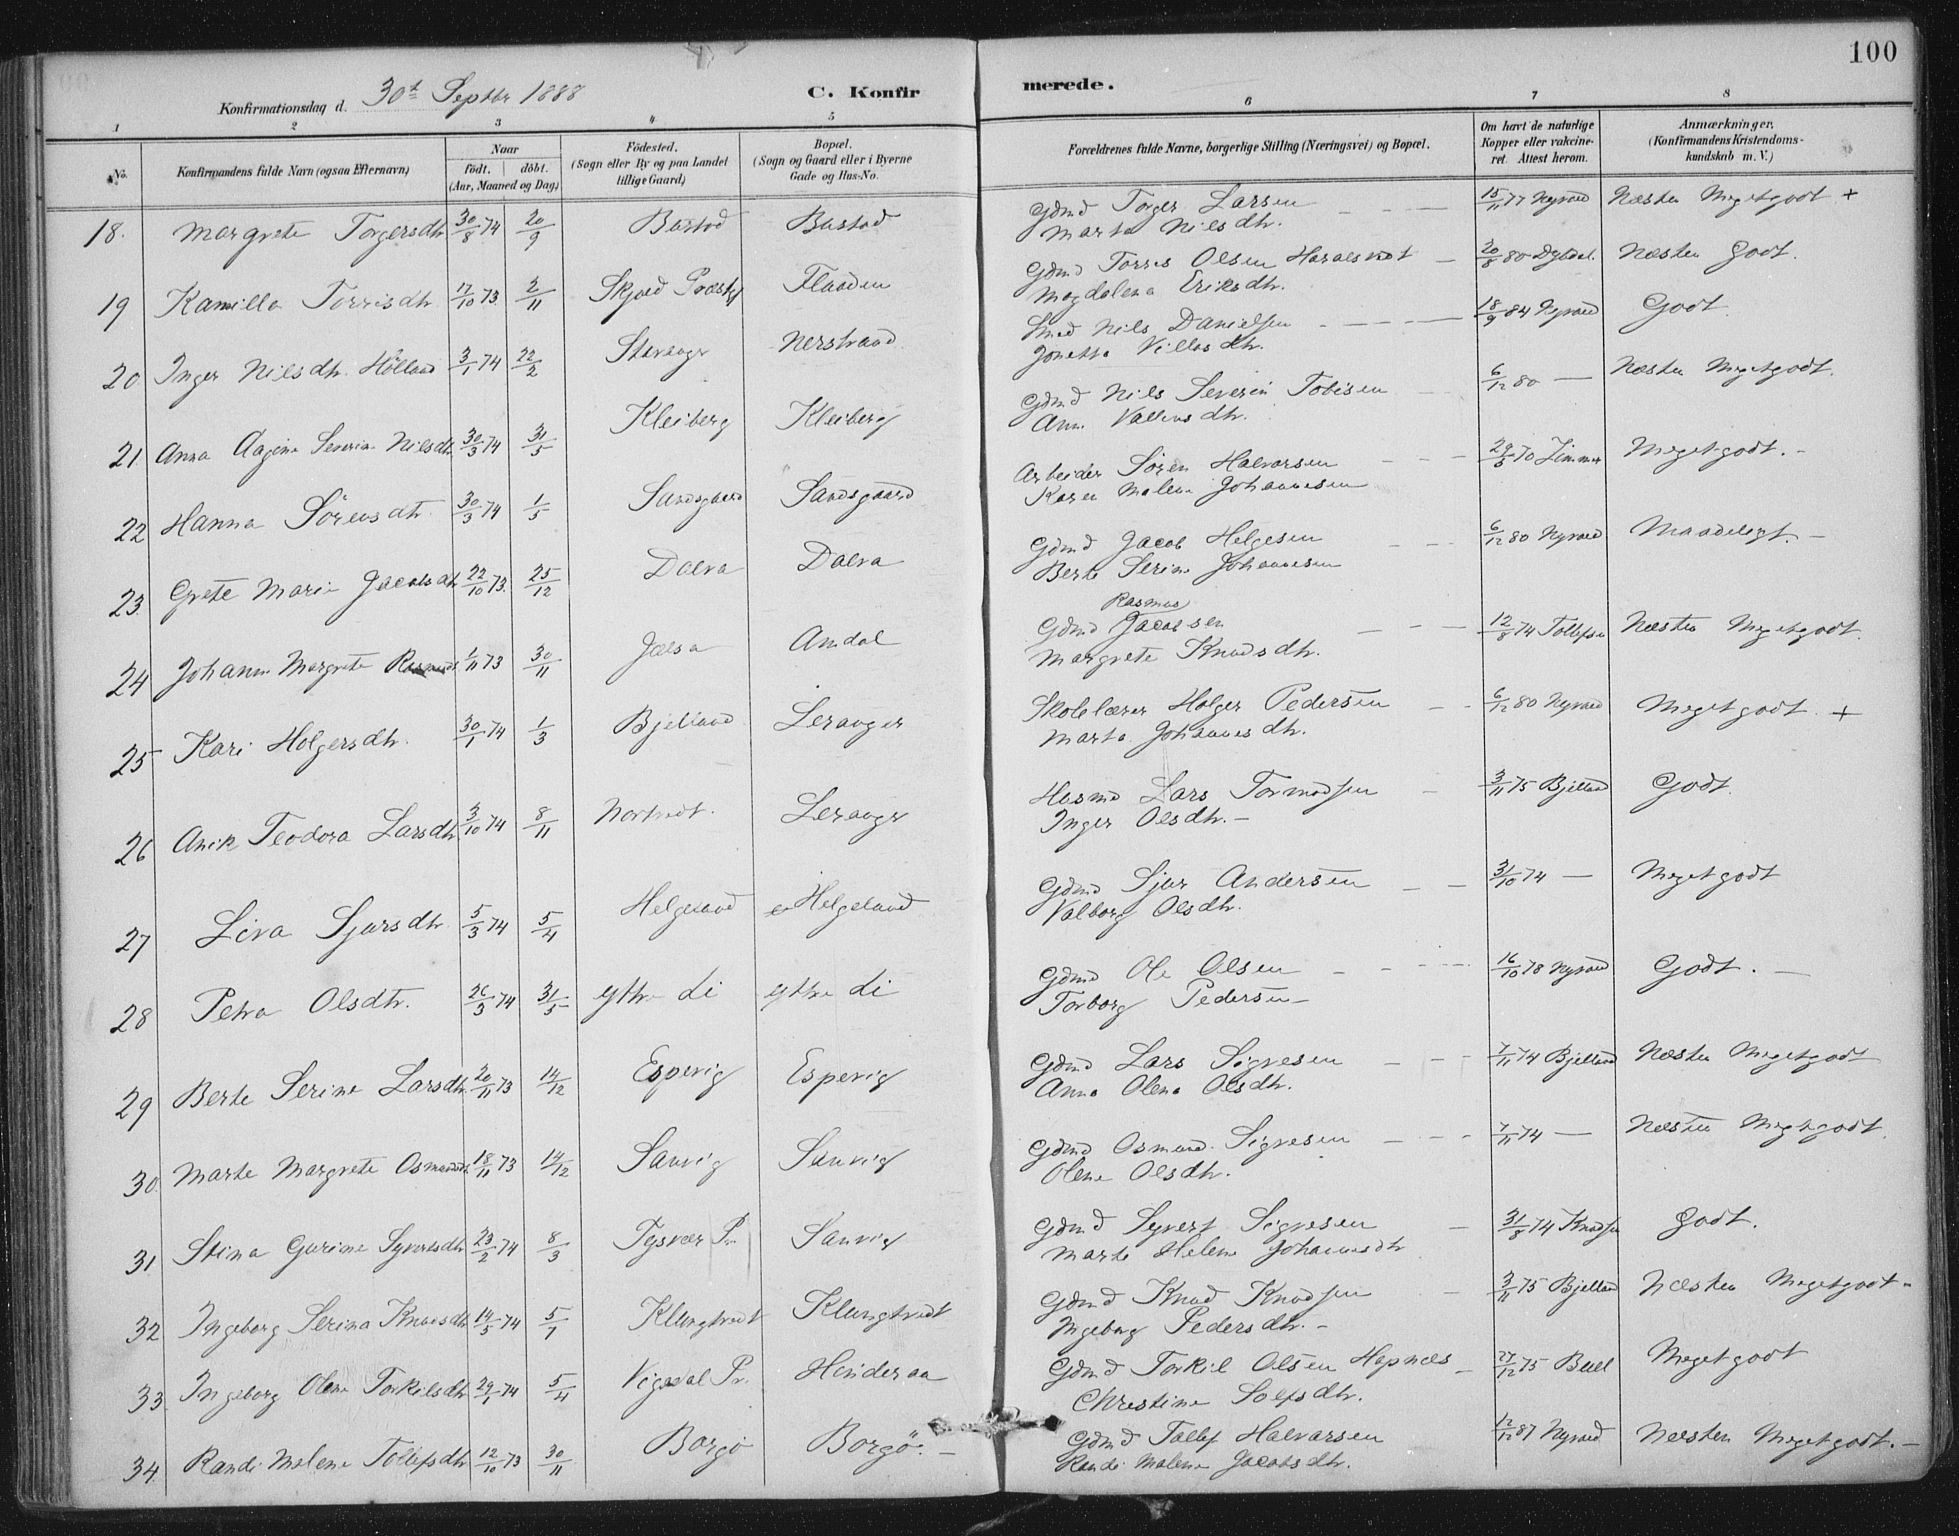 100
Konfirmationsdag d. 30t Septbr 1888
C. Konfirmerede.
1 2 3 4 5 6 7 8
No. Konfirmandens fulde Navn (ogsaa Efternavn) Naar födt. döbt. (Aar, Maaned og Dag) Födested. (Sogn eller By og paa Landet tillige Gaard) Bopæl. (Sogn og Gaard eller i Byerne Gade og Hus-No. Forældrenes fulde Navne, borgerlige Stilling (Næringsvei) og Bopæl. Om havt de naturlige Kopper eller vakcineret. Attest herom. Anmærkninger. (Konfirmandens Kristendomskundskab m. V.)
18. Margrete Torgersdtr 30/8 74 20/9 Bustad Bustad Gdmd Torger Larsen 15/11 77 Nyraad Næsten Megetgodt +
Marta Nilsdtr.
19 Kamilla Torrisdtr 17/10 73. 2/11 Skjold Præstgj Flaaden Gdmd Torris Olsen Haralsvedt 20/8 80 Næsten Godt.
Magdalena Eriksdtr.
20 Inger Nilsdtr. Hölland 3/1 74 22/2 Stavanger Nerstrand Smed Nils Danielsen 18/9 84 Nyraad Godt.
Jonetta Villasdtr.
21. Anna Aagine Severine Nilsdtr 30/3 74 31/5 Kleiberg Kleiberg Gdmd Nils Severin Tobisen 6/12 80 — Næsten Megetgodt.
22 Hanna Sörensdtr. 30/3 74 1/5 Sandsgaard Sandsgaard Arbeider Sören Halvorsen 29/5 70 Zimmer Megetgodt. -
Karen Malene Johannesen
23. Grete Marie Jacobsdtr 22/10 73. 25/12 Dalva Dalva Gdmd Jacob Helgesen 6/12 80 Nyraad Maadeligt. -
Berte Serine Johannesen
24 Johanne Margrete Rasmusdt. 1/11 73 30/11 Jælsa Amdal Gdmd Rasmus Jacobsen 12/8 74 Tollefsen Næsten Megetgodt.
Margrete Knudsdtr.
25 Kari Holgersdtr. 30/1 74 1/3 Bjelland Leranger Skolelærer Holger Pedersen 6/12 80 Nyraad Megetgodt. +
Marta Johannesdtr.
26 Anik Teodora Larsdtr 3/10 74 8/11 Nortvedt. Leranger Husmd Lars Tormodsen 3/11 75 Bjelland Godt.
Inger Olsdtr. -
27 Liva Sjursdtr 5/3 74 5/4 Helgeland Helgeland Gdmd Sjur Andersen 31/10 74 — Megetgodt
Valborg Olsdtr.
28 Petra Olsdtr. 26/3 74 31/5 Ytre Li Ytre Li Gdmd Ole Olsen 16/10 78 Nyraad Godt. -
Torborg Pedersen -
29 Berte Serine Larsdtr 20/11 73 14/12 Espevig Espevig Gdmd Lars Sigvesen 7/11 74 Bjelland Næsten Megetgodt
Anna Olena Olsdtr.
30. Marte Margrete Osmundsdt. 18/11 73 14/12 Sanvig Sanvig Gdmd Osmund Sigvesen 7/11 74 — Næsten Megetgodt.
Olene Olsdtr.
31. Stina Gurine Syvertsdtr 23/2 74 8/3 Tysvær Pr. Sanvig Gdmd Syvert Sigvesen 31/8 74 Knudsen Godt.
Marta Helene Johannesdtr
32 Ingeborg Serina Knudsdtr 14/5 74 5/7 Klungtvedt Klungtvedt Gdmd Knud Knudsen 3/11 75 Bjelland Næsten Megetgodt -
Ingeborg Pedersdtr. -
33. Ingeborg Olene Torkilsdtr 29/1 74 5/4 Vigedal Pr. Hinderaa Gdmd Torkil Olsen Hapnæs 27/12 75 Buel Megetgodt
Christine Solfsdtr.
34. Randi Malene Tollefsdtr 12/10 73 30/11 Borgö Borgö. - Gdmd Tollef Halvorsen 12/12 87 Nyraad Næsten Megetgodt. -
Randi Malene Jacobsdtr.